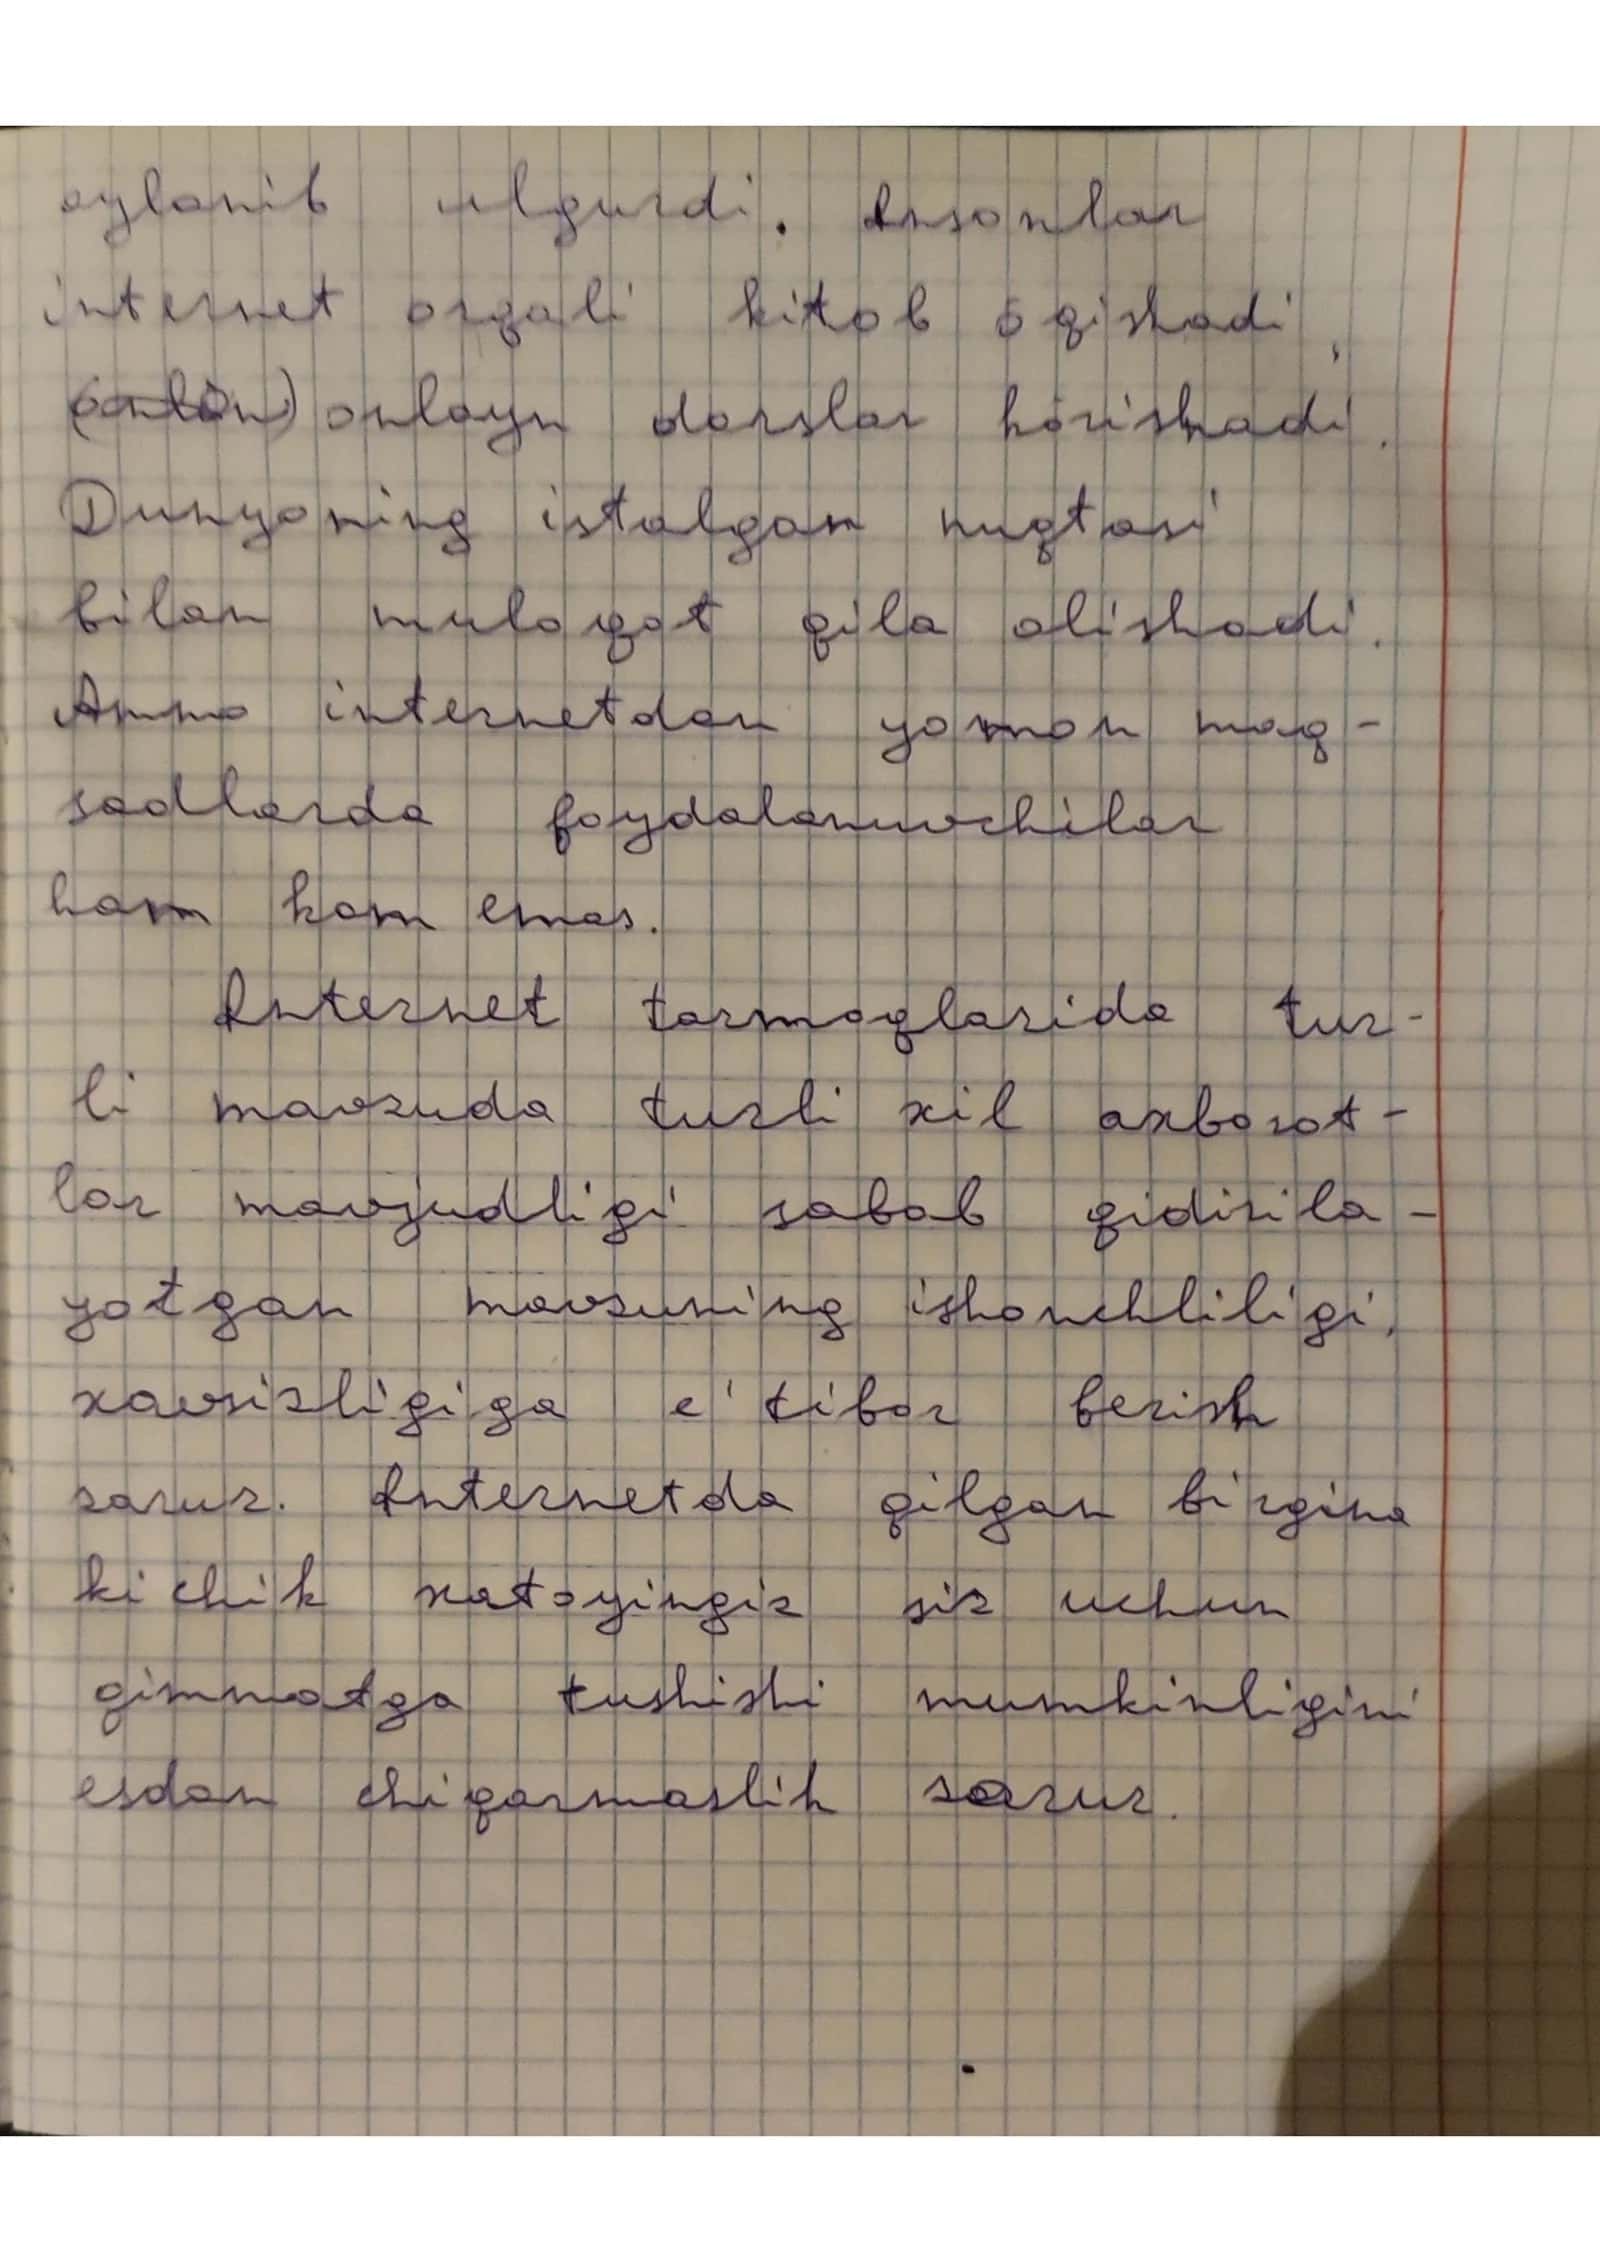 aylanib ulgurdi. Insonlar
internet orqali kitob ōqishadi,
onlayn darslar kōrishadi.
Dunyoning istalgan nuqtasi
bilan muloqot qila olishadi.
Ammo internetdan yomon maq-
sadlarda foydalanuvchilar
ham kam emas.
Internet tarmoqlarida tur-
li mavzuda turli xil axborot-
lar mavjudligi sabab qidirila-
yotgan mavzuning ishonchliligi,
xavsizligiga e'tibor berish
zarur. Internetda qilgan birgina
kichik xatoyingiz siz uchun
qimmatga tushishi mumkinligini
esdan chiqarmaslik zarur.